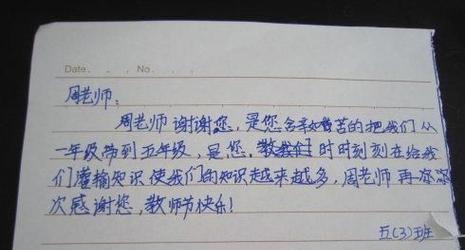 Date. . , No. . ,
周老师:
周老师谢谢您,是您含辛如苦的把我们从
一年级带到五年级,是您,时时刻刻在给我
们灌输知识使我们的知识越来越多,周老师再
次感谢您,教师节快乐!
五(3)班